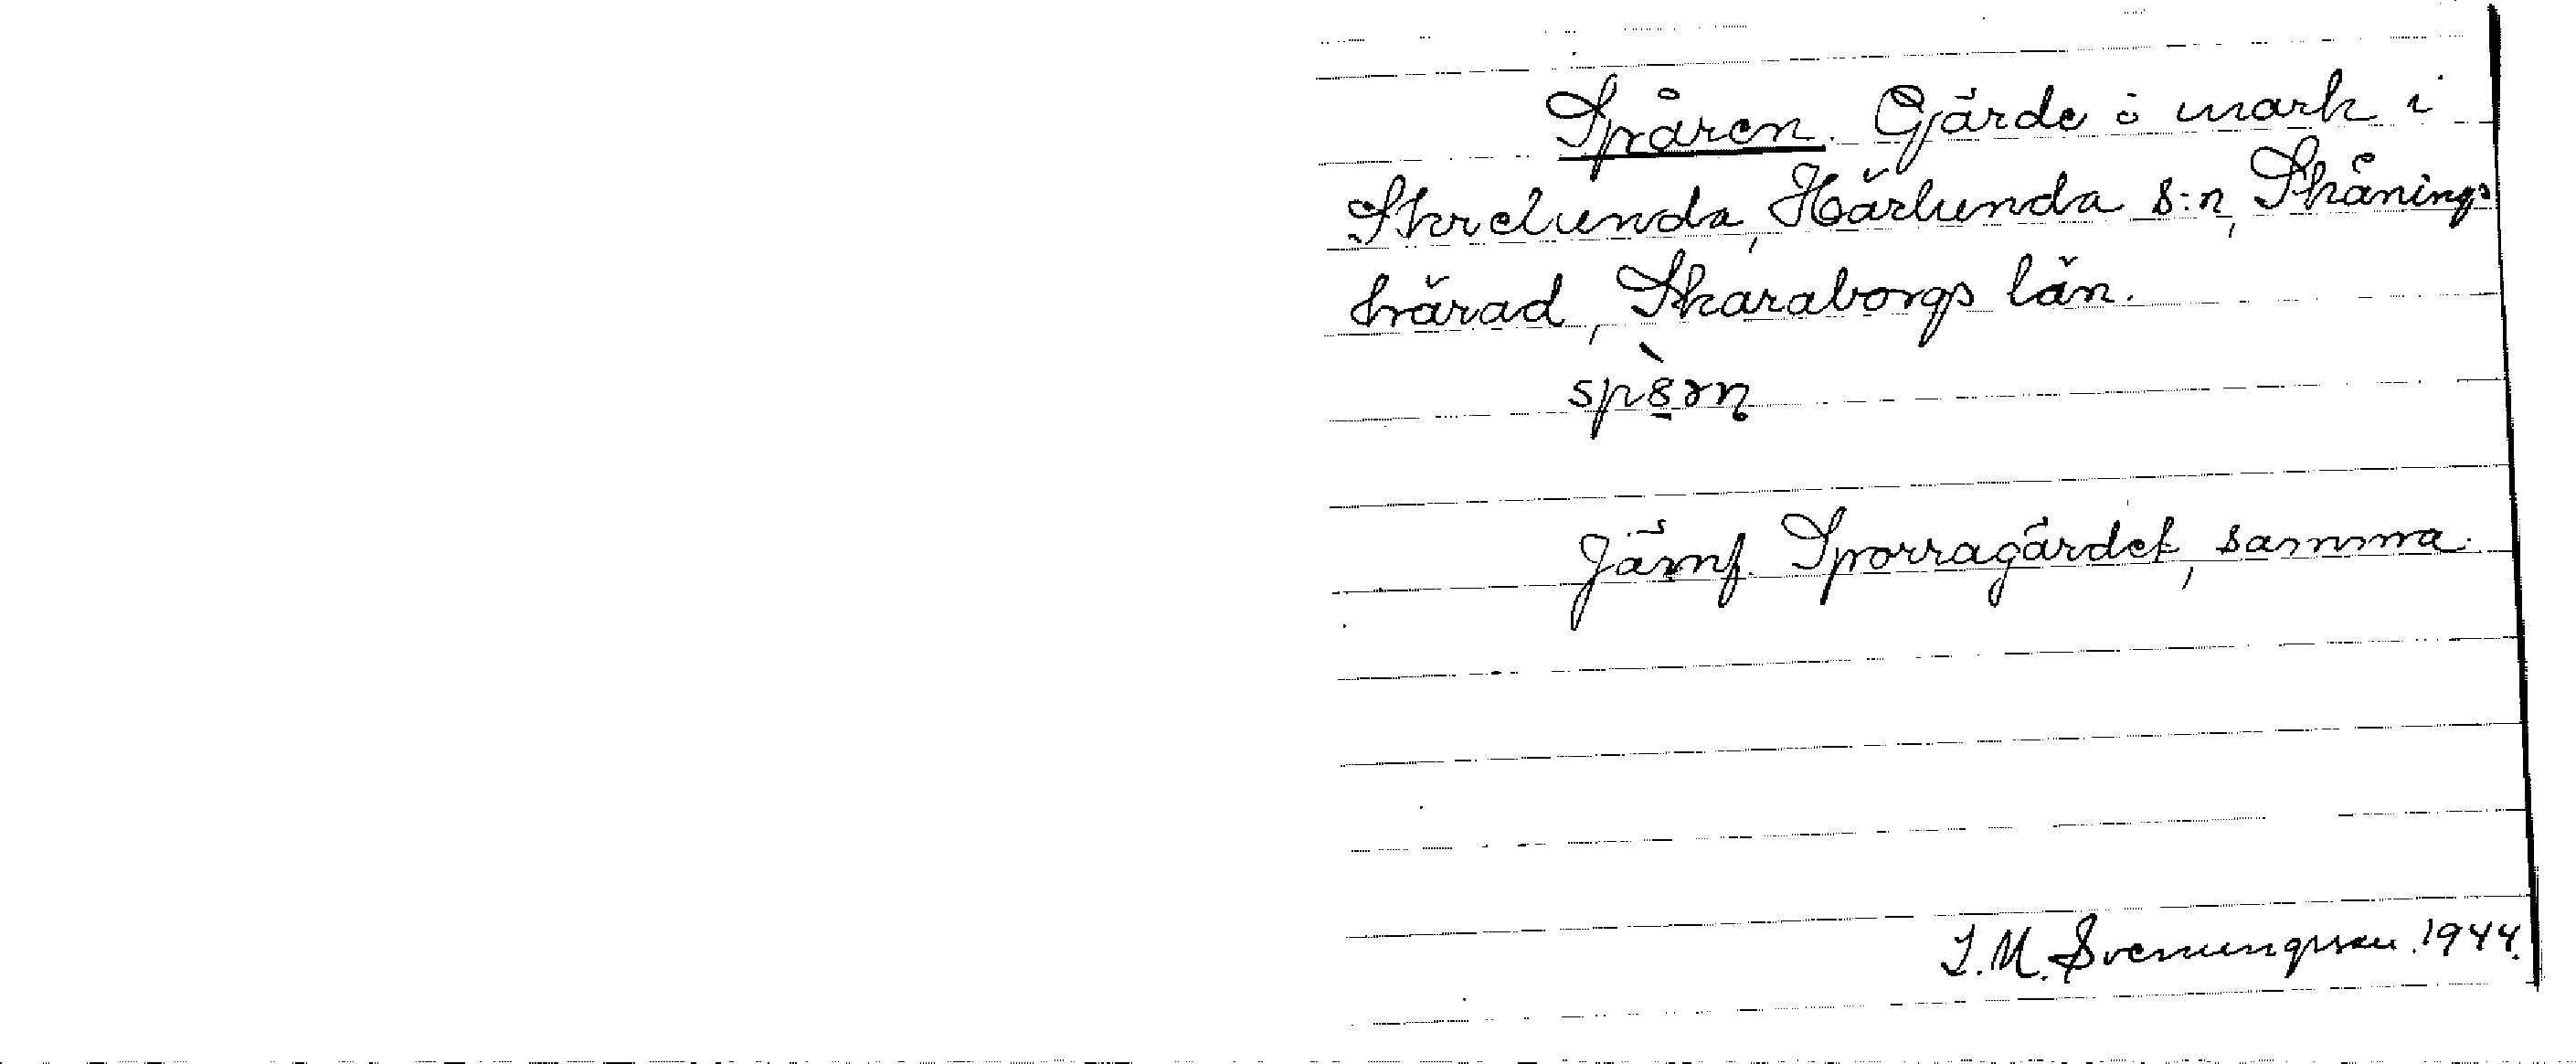 Spåren. Gärde å mark i
Skrelunda, Härlunda s:n, Skånings
härad, Skaraborgs län.
Jämf. Sporragärdet, samma.
S.M. Svenungsson 1944.